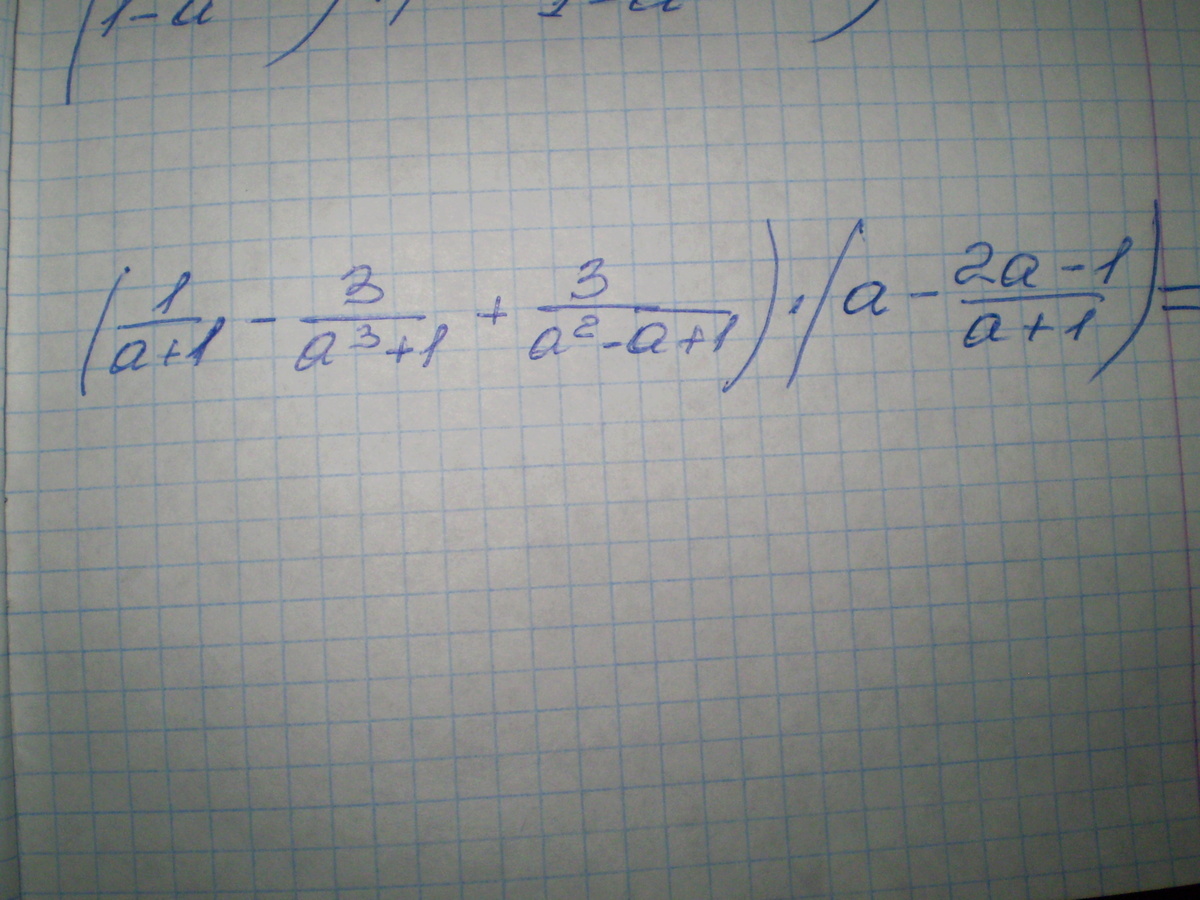 (1-a) 1-a)
(1/(a+1) - 3/(a³+1) + 3/(a²-a+1)) · (a - (2a-1)/(a+1)) =